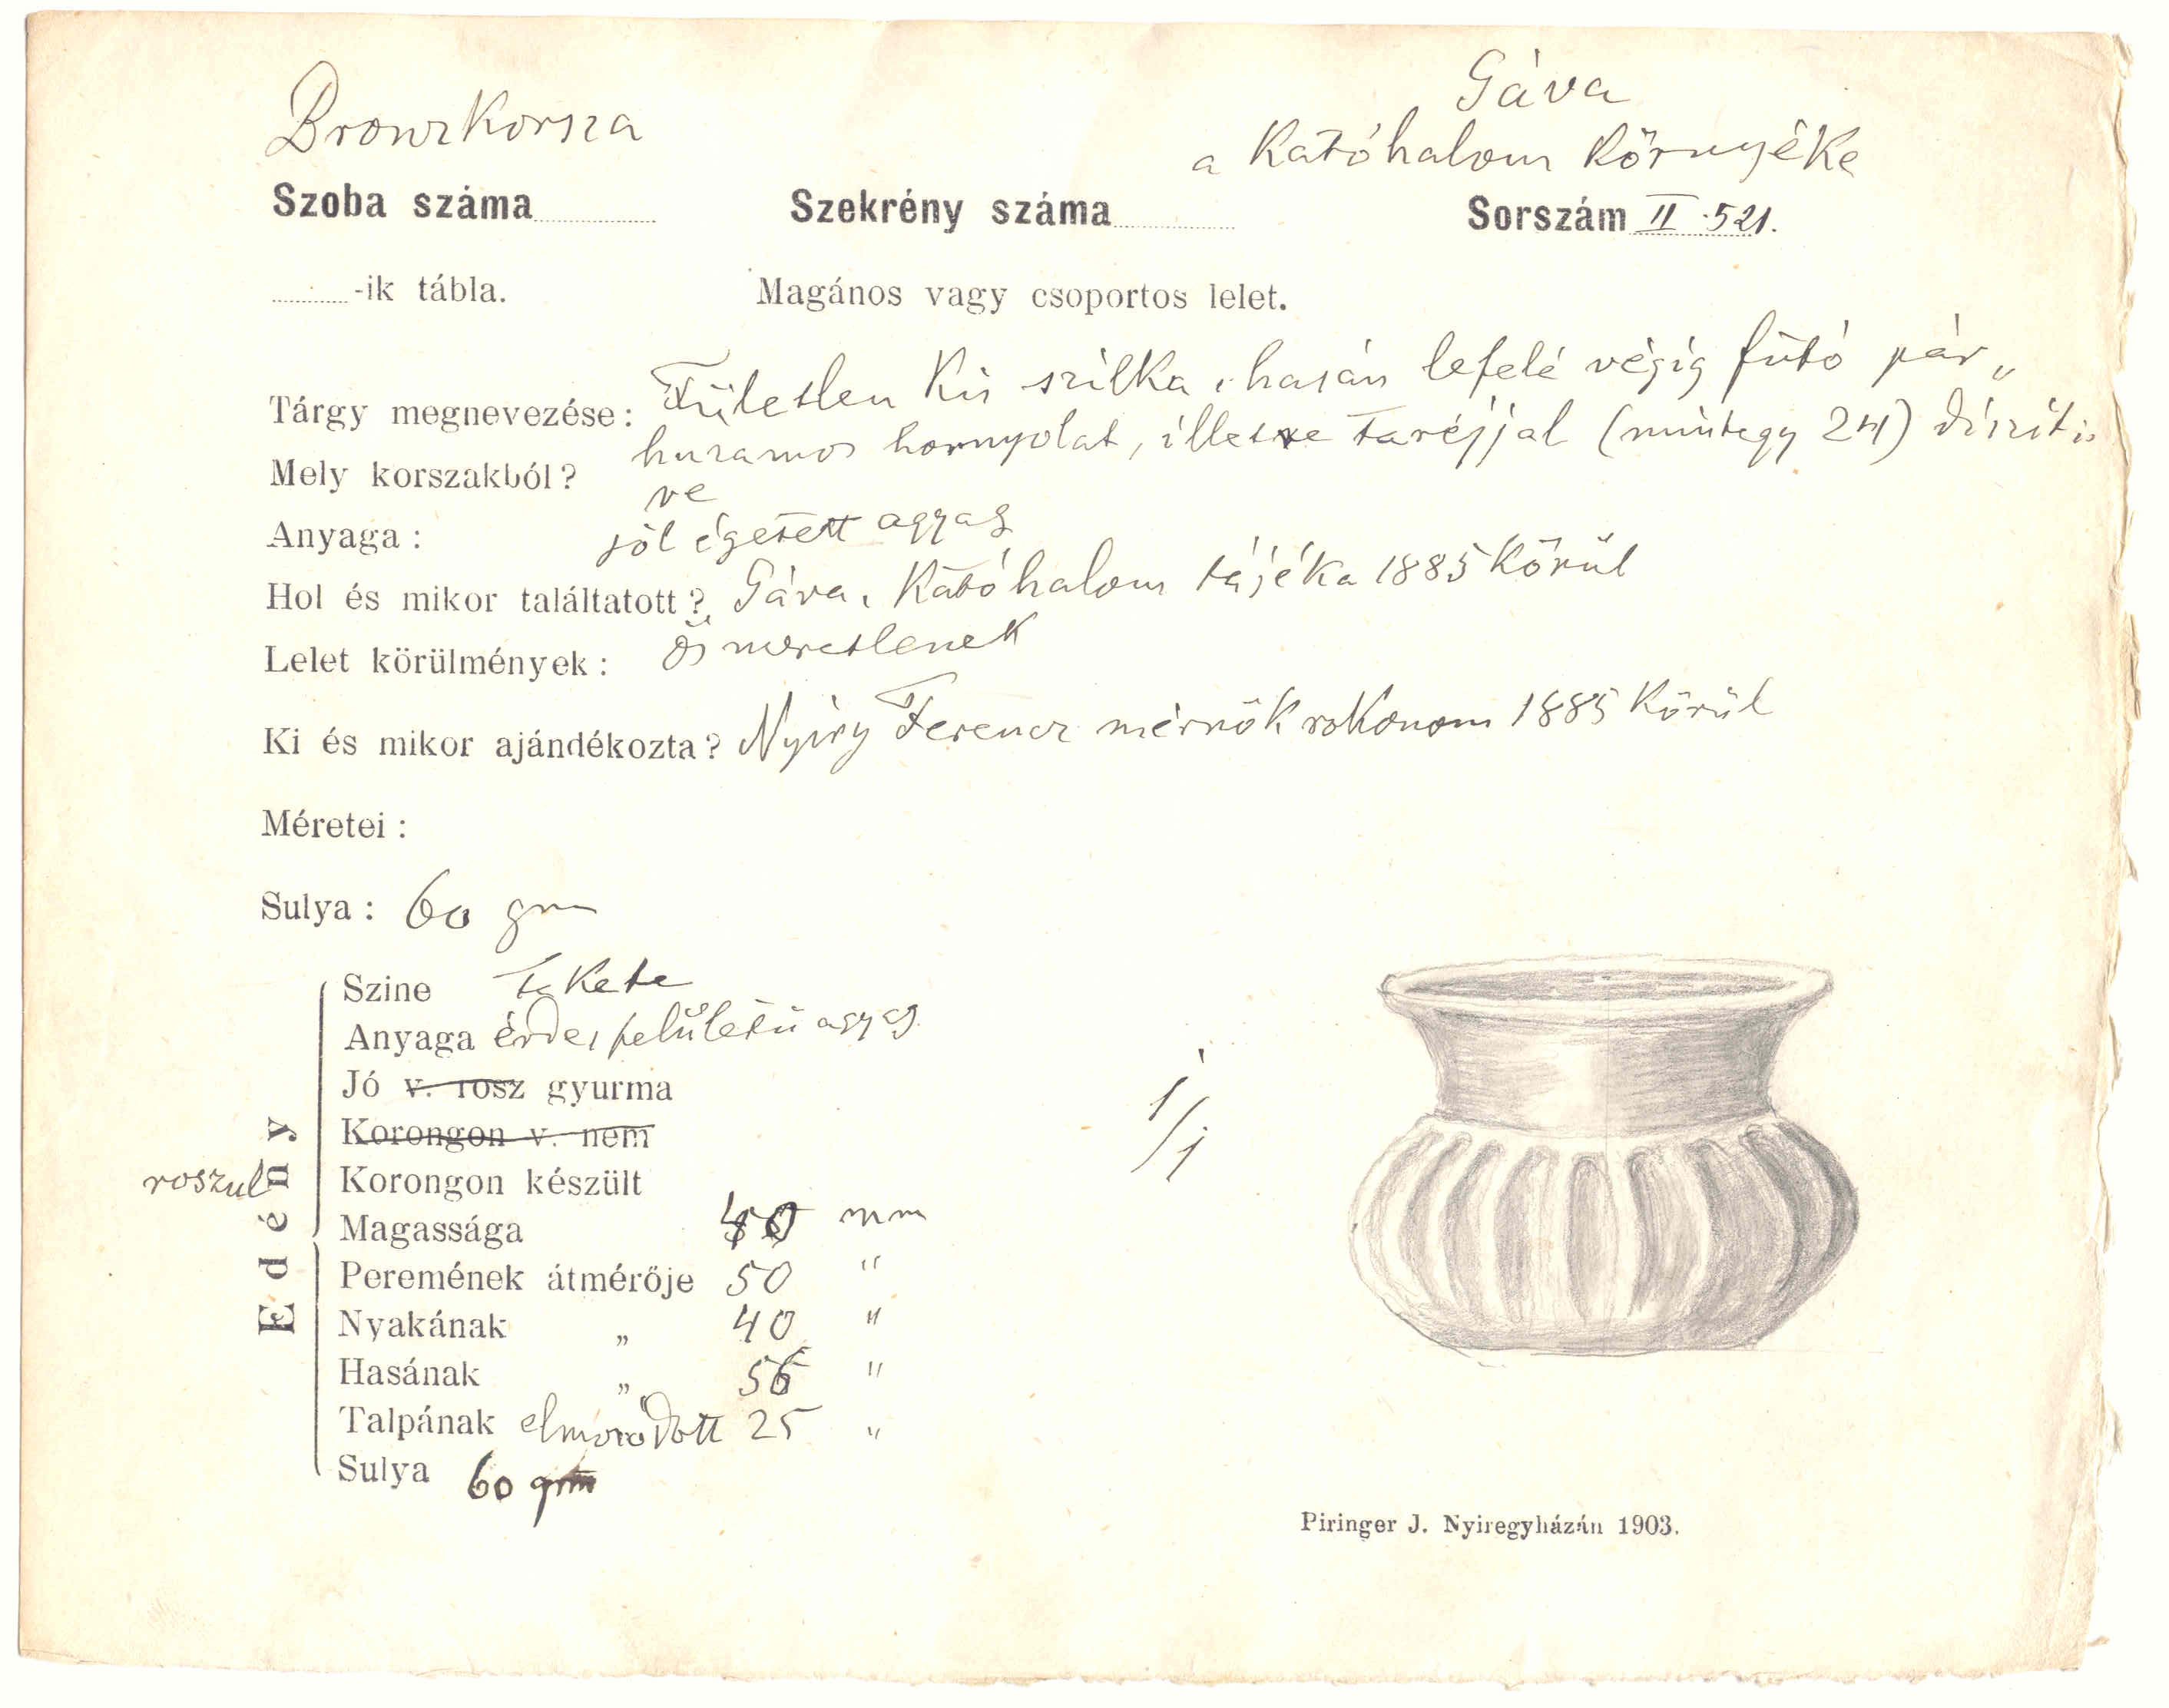 Gáva
Bronzkorsza
a Katóhalom környéke
Szoba száma Szekrény száma Sorszám II .521.
-ik tábla. Magános vagy csoportos lelet.
Tárgy megnevezése: Fületlen kis szilka, hasán lefelé végig futó pár„
huzamos hornyolat, illetve taréjjal (mintegy 24) díszít
Mely korszakból?
ve
Anyaga: jól égetett agyag
Hol és mikor találtatott? Gáva, Katóhalom tájéka 1885 körül
Lelet körülmények: ösmeretlenek
Ki és mikor ajándékozta? Nyiry Ferencz mérnök rokonom 1885 körül
Méretei:
Sulya: 60 gm
Edény
Szine fekete
Anyaga érdes felületü agyag
Jó v. rosz gyurma
Korongon v. nem
roszul Korongon készült
Magassága 40 mm
Peremének átmérője 50 "
Nyakának „ 40 "
Hasának „ 56 "
Talpának elmosódott 25 "
Sulya 60 grm
1/1
Piringer J. Nyiregyházán 1903.